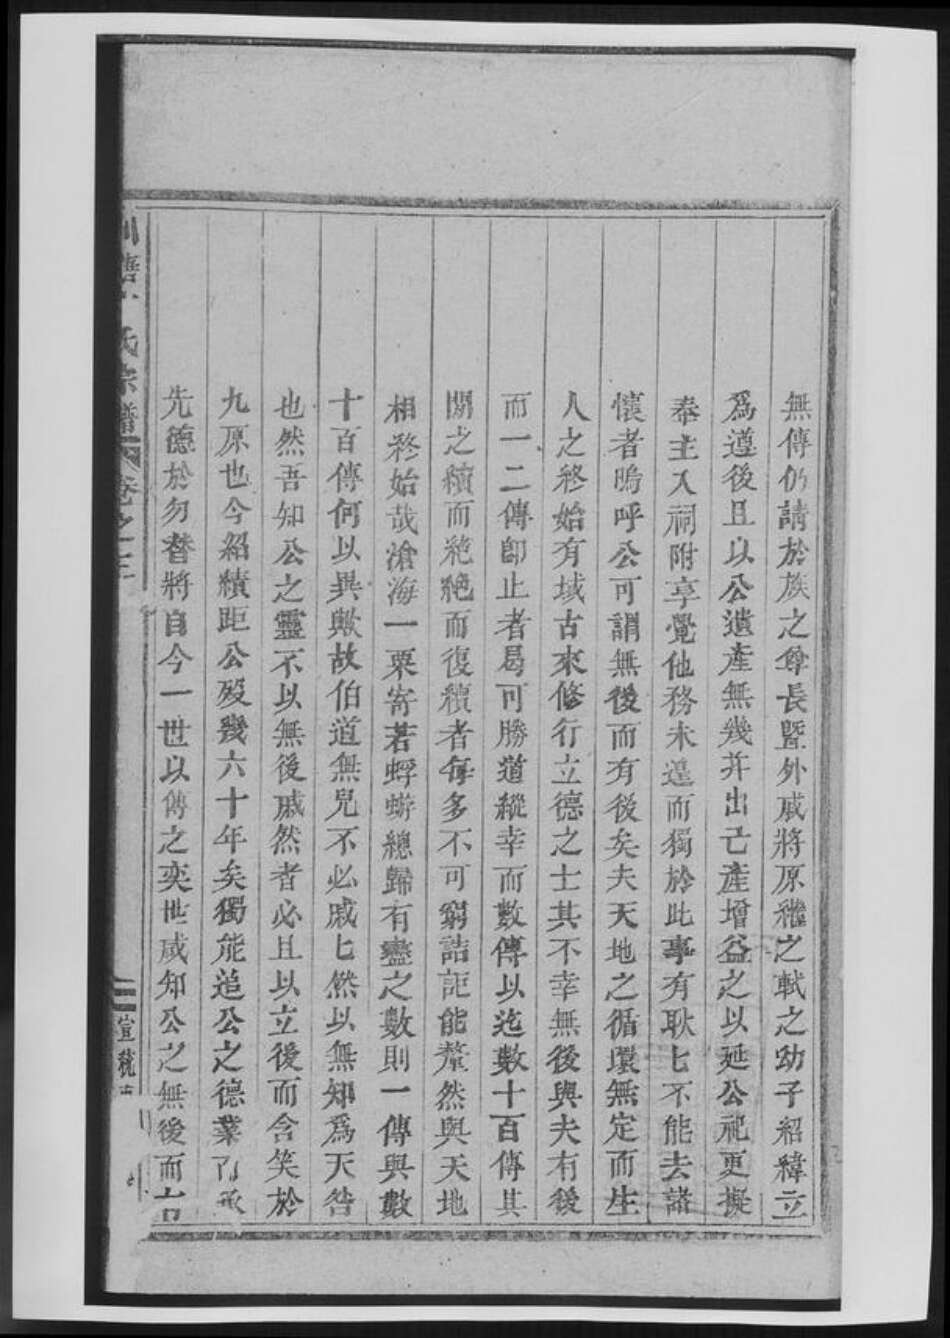 無傳仍請於族之尊長暨外戚將原繼之軾之幼子紹緯立
爲遵後且以公遺產無幾并出己產增益之以延公祀更擬
奉主入祠附享覺他務未遑而獨於此事有耿匕不能去諸
懷者嗚呼公可謂無後而有後矣夫天地之循環無定而生
人之終始有域古來修行立德之士其不幸無後與夫有後
而一二傳卽止者曷可勝道縱幸而數傳以迄數十百傳其
間之續而絕絕而復續者每多不可窮詰詎能釐然與天地
相終始哉滄海一粟寄若蜉蝣總歸有盡之數則一傳與數
十百傳何以異歟故伯道無兒不必戚匕然以無知爲天咎
也然吾知公之靈不以無後戚然者必且以立後而含笑於
九原也今紹績距公歿幾六十年矣獨能追公之德業而承
先德於勿替將自今一世以傳之奕世咸知公之無後而
氏宗譜 卷之